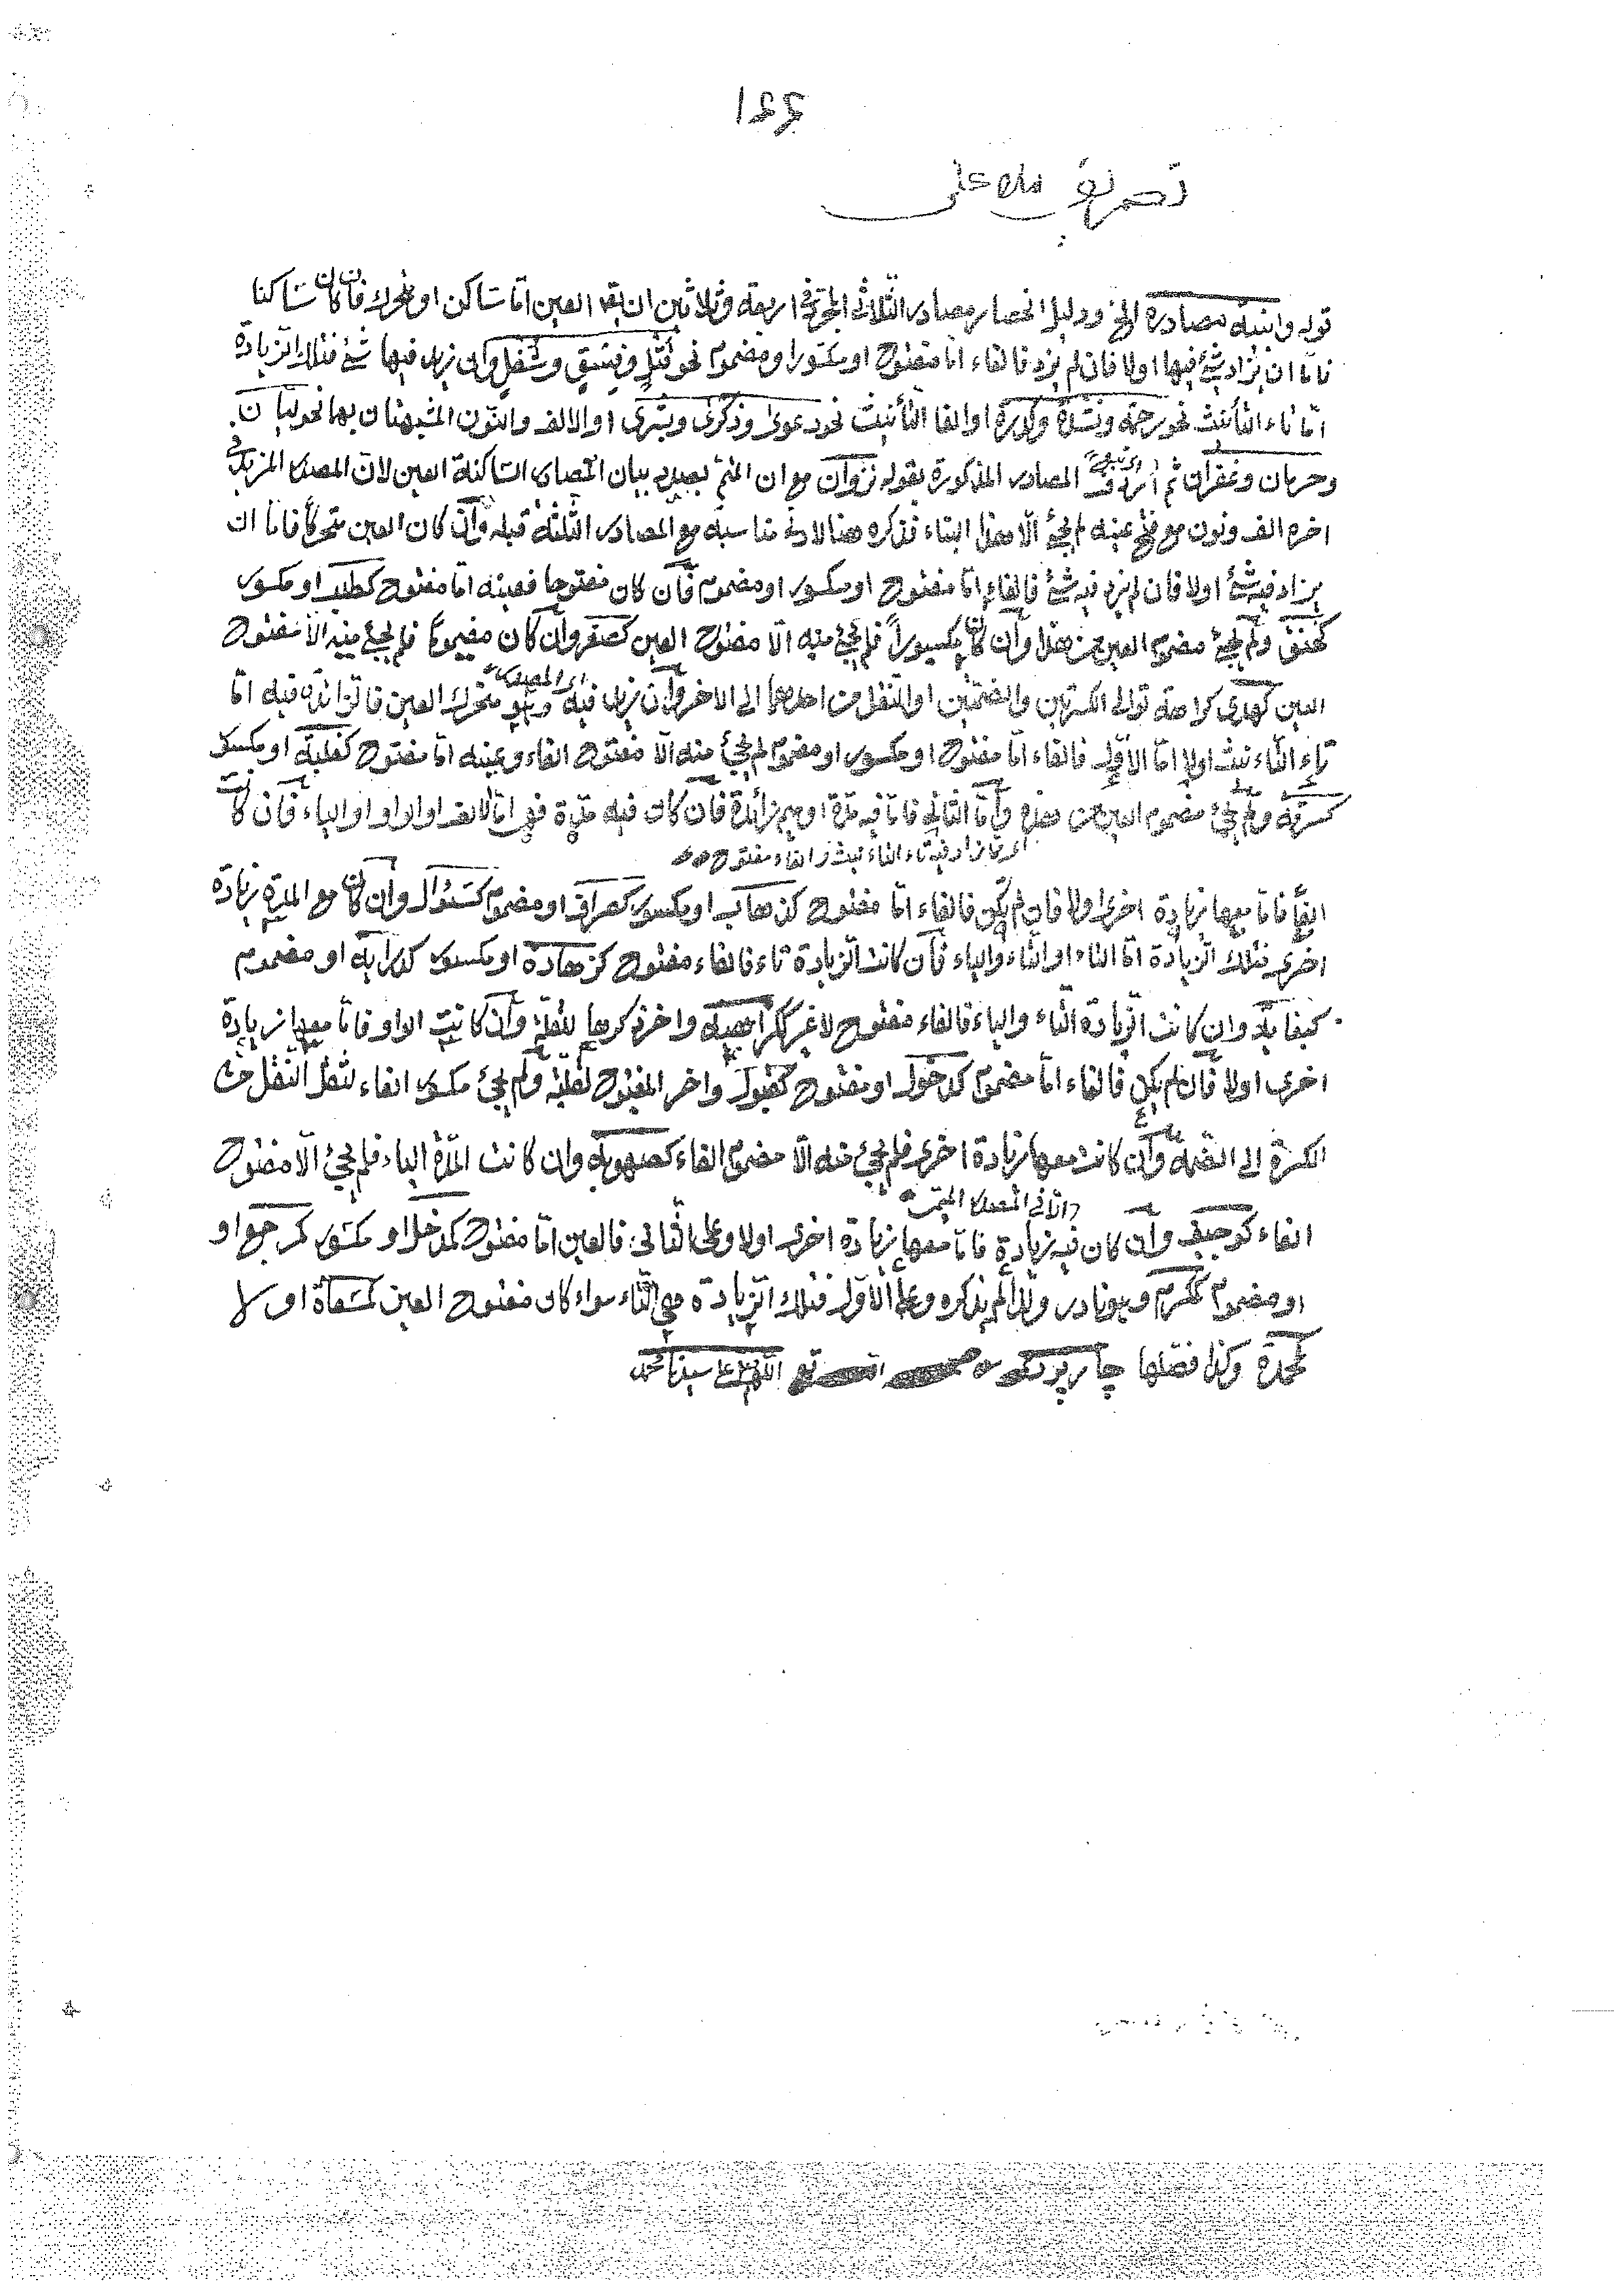 ١٤٤
تصريف ملا على
قوله وابنية مصادره الخ ودليل انحصار مصادر الثلاثى المجرد فى اربعة وثلاثين ان يقال العين امّا ساكن او متحرك فان كان ساكنا
فامّا ان يزاد شئ فيها اولا فان لم يزد فالفاء امّا مفتوح او مكسور او مضموم نحو قتل وفسق وشغل وان زيد فيها شئ فتلك الزيادة
امّا تاء التأنيث نحو رحمة ونشدة وكدرة او الف التأنيث نحو دعوى وذكرى وبشرى او الالف والنون المشبهتان بها نحو ليّان
وحرمان وغفران ثم المصادر المذكورة بقوله نزوان مع ان المتن بصدد بيان المصادر الساكنة العين لان المصدر المزيد فى
اخره الف ونون مع فتح عينه لم يجئ الّا هذا البناء فذكره هنا لادنى مناسبة مع المصادر الثلثة قبله وان كان العين متحركا فامّا ان
يزاد فيه شئ اولا فان لم يزد فيه شئ فالفاء امّا مفتوح او مكسور او مضموم فان كان مفتوحا فعينه امّا مفتوح كطلب او مكسور
كخنق ولم يجئ مضموم العين من هذا وان كان مكسوراً فلم يجئ منه الّا مفتوح العين كصغر وان كان مضموما فلم يجئ منه الّا مفتوح
العين كهدى كراهة توالى الكسرتين والضمّتين او النقل من احدهما الى الاخر وان زيد فيه وهو متحرك العين فالزائدة فيه امّا
اى المصدر
تاء التاءنيث اولا امّا الاوّل فالفاء امّا مفتوح او مكسور او مضموم لم يجئ منه الّا مفتوح الفاء وعينه امّا مفتوح كغلبة او مكسور
كسرقة ولم يجئ مضموم العين من هذه وامّا الثانى فامّا فيه مدّة او ميم زائدة فان كان فيه مدّة فهى امّا الالف او الواو او الياء فان كانت
الفاً فامّا معها زيادة اخرى اولا فان لم يكن فالفاء امّا مفتوح كذهاب او مكسور كصراف او مضموم كسئوال وان كان مع المدّة زيادة
اخرى فتلك الزيادة امّا التاء او التاء والياء فان كانت الزيادة تاء فالفاء مفتوح كزهادة او مكسور كدراية او مضموم
كبغاية وان كانت الزيادة التاء والياء فالفاء مفتوح لا غير ككراهية واخر ذكرها لقلّته وان كانت الواو فامّا معها زيادة
اخرى اولا فان لم يكن فالفاء امّا مضموم كدخول او مفتوح كقبول واخر المفتوح لقلته ولم يجئ مكسور الفاء لثقل النقل من
الكسرة الى الضمة وان كانت معها زيادة اخرى فلم يجئ منه الّا مضموم الفاء كصهوبة وان كانت المدّة الياء فلم يجئ الّا مفتوح
الفاء كوجيف وان كان فيه زيادة فامّا معها زيادة اخرى اولا وعلى الثانى فالعين امّا مفتوح كمدخل او مكسور كمرجع او
او مضموم كمكرم وهو نادر ولذا لم يذكره وعلى الاوّل فتلك الزيادة هى التاء سواء كان مفتوح العين كمسعاة او لا
كمحمدة وكذا فصلها چارپردى اللهم صل على سيدنا محمد